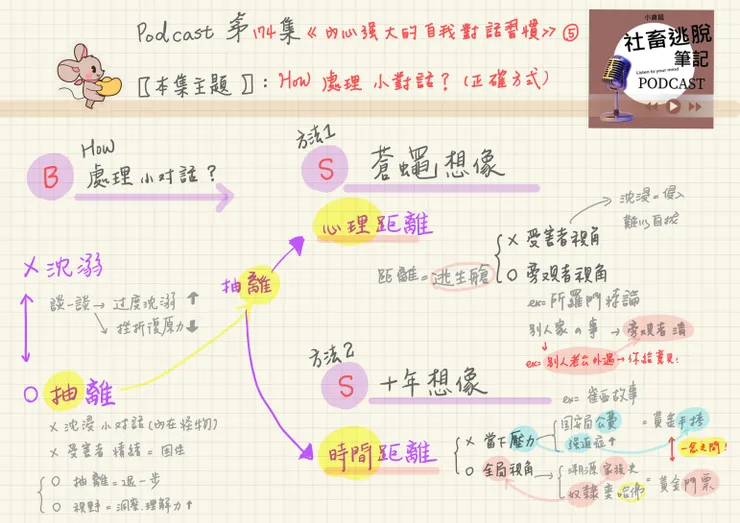 Podcast 第174集《內心强大的自我對話習慣》⑤
〖本集主題〗: How 處理小對話?(正確方式)
小倉鼠
社畜逃脫
筆記
Listen to your mind
PODCAST
B
How
處理小对話?
方法1
S
蒼蠅想像
心理距離
距離=逃生艙
x 受害者視角
沈浸=侵入
難以自拔
o 旁观者視角
ex: 所羅門悖論
別人家の事→旁观者清
ex: 別人老公外遇→你給意見!
x 沈溺
談一談→过度沈溺↑
→挫折復原力↓
抽離
o 抽離
x 沈浸小對話(內在怪物)
x 受害者情緒=困住
o 抽離=退一步
o 視野=洞察.理解力↑
方法2
S
十年想像
時間距離
ex: 崔西故事
x 當下壓力
国安局公費
強迫症↑
=黃金手銬
一念之間!
o 全局視角
溯源家族史
奴隸變哈佛
=黃金門票